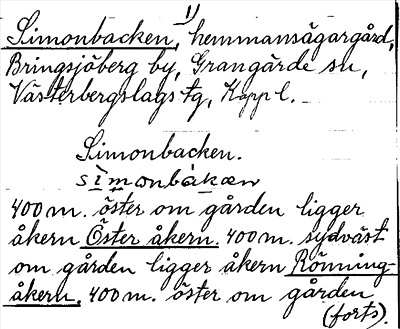 1)
Simonbacken, hemmansägargård,
Bringsjöberg by, Grangärde sn,
Västerbergslags tg, Kopp l.
Simonbacken.
simonbàkæn
400 m. öster om gården ligger
åkern Öster åkern. 400 m. sydväst
om gården ligger åkern Rönning-
åkern. 400 m. öster om gården
(forts).